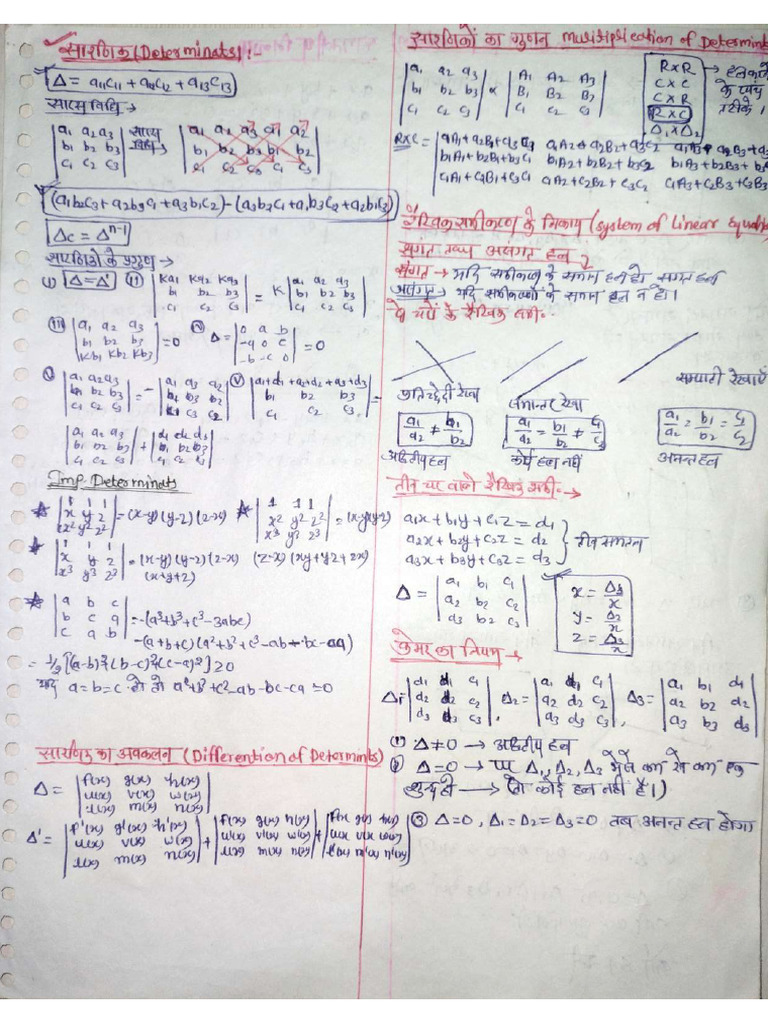 सारणिक (Determinats) :-
Δ = a₁₁C₁₁ + a₁₂C₁₂ + a₁₃C₁₃
सारस विधि →
| a₁ a₂ a₃ |
| b₁ b₂ b₃ |
| c₁ c₂ c₃ |
सारस विधि →
a₁ a₂ a₃ a₁ a₂
b₁ b₂ b₃ b₁ b₂
c₁ c₂ c₃ c₁ c₂
(a₁b₂c₃ + a₂b₃c₁ + a₃b₁c₂) - (a₃b₂c₁ + a₁b₃c₂ + a₂b₁c₃)
Δc = Δⁿ⁻¹
सारणिको के गुण →
(I) Δ = Δ'
(II) | Ka₁ Ka₂ Ka₃ | = K | a₁ a₂ a₃ |
| b₁ b₂ b₃ | | b₁ b₂ b₃ |
| c₁ c₂ c₃ | | c₁ c₂ c₃ |
(III) | a₁ a₂ a₃ |
| b₁ b₂ b₃ | = 0
| Kb₁ Kb₂ Kb₃ |
Δ = | 0 a b |
| -a 0 c | = 0
| -b -c 0 |
| a₁ a₂ a₃ |
| b₁ b₂ b₃ | = -
| c₁ c₂ c₃ |
(V) | a₁+d₁ +a₂+d₂ +a₃+d₃ |
| b₁ b₂ b₃ | =
| c₁ c₂ c₃ |
| a₁ a₂ a₃ | + | d₁ d₂ d₃ |
| b₁ b₂ b₃ | | b₁ b₂ b₃ |
| c₁ c₂ c₃ | | c₁ c₂ c₃ |
Imp. Determinats
| 1 1 1 |
| x y z | = (x-y)(y-z)(z-x)
| x² y² z² |
| 1 1 1 |
| x² y² z² | = (x-y)(y-z)
| x³ y³ z³ | (z-x)(xy+yz+zx)
| 1 1 1 |
| x y z | = (x-y)(y-z)(z-x)
| x³ y³ z³ | (x+y+z)
| a b c |
| b c a | = -(a³+b³+c³-3abc)
| c a b | -(a+b+c)(a²+b²+c²-ab-bc-ca)
= 1/2 [(a-b)²+(b-c)²+(c-a)²] ≥ 0
यदि a=b=c हो तो a²+b²+c²-ab-bc-ca = 0
सारणिक का अवकलन (Differention of Determinats)
Δ = | f(x) g(x) h(x) |
| u(x) v(x) w(x) |
| l(x) m(x) n(x) |
Δ' = | f'(x) g'(x) h'(x) | + | f(x) g(x) h(x) | + | f(x) g(x) h(x) |
| u(x) v(x) w(x) | | u'(x) v'(x) w'(x) | | u(x) v(x) w(x) |
| l(x) m(x) n(x) | | l(x) m(x) n(x) | | l'(x) m'(x) n'(x) |
सारणिकों का गुणन Multiplication of Determin
| a₁ a₂ a₃ | × | A₁ A₂ A₃ |
| b₁ b₂ b₃ | | B₁ B₂ B₃ |
| c₁ c₂ c₃ | | C₁ C₂ C₃ |
R×R
C×C
C×R
R×C
Δ₁×Δ₂
हल करने के
R×C =
a₁A₁+a₂B₁+a₃C₁ a₁A₂+a₂B₂+a₃C₂ a₁A₃+a₂B₃+a₃
b₁A₁+b₂B₁+b₃C₁ b₁A₂+b₂B₂+b₃C₂ b₁A₃+b₂B₃+b
c₁A₁+c₂B₁+c₃C₁ c₁A₂+c₂B₂+c₃C₂ c₁A₃+c₂B₃+c₃B₃
रैखिक समीकरण के निकाय (System of Linear Equati
सुसंगत तथा असंगत हल
संगत → यदि समीकरण के समान हल हो
असंगत → यदि समीकरणों के समान हल न हो।
दो चरों के रैखिक समी॰
प्रतिच्छेदी रेखा
समान्तर रेखा
सम्पाती रेखाएँ
a₁/a₂ ≠ b₁/b₂
a₁/a₂ = b₁/b₂ ≠ c₁/c₂
a₁/a₂ = b₁/b₂ = c₁/c₂
अद्वितीय हल
कोई हल नहीं
अनन्त हल
तीन चर वाले रैखिक समी॰ →
a₁x + b₁y + c₁z = d₁
a₂x + b₂y + c₂z = d₂
a₃x + b₃y + c₃z = d₃
Δ = | a₁ b₁ c₁ |
| a₂ b₂ c₂ |
| d₃ b₂ c₃ |
x = Δ₁/x
y = Δ₂/x
z = Δ₃/x
क्रेमर का नियम →
Δ₁ = | d₁ b₁ c₁ | Δ₂ = | a₁ d₁ c₁ | Δ₃ = | a₁ b₁ d₁ |
| d₂ b₂ c₂ | | a₂ d₂ c₂ | | a₂ b₂ d₂ |
| d₃ b₃ c₃ |, | a₃ d₃ c₃ |, | a₃ b₃ d₃ |
(1) Δ≠0 → अद्वितीय हल
(2) Δ=0 → पर Δ₁, Δ₂, Δ₃ मेसे कम से कम एक
शून्य नहीं → (तो कोई हल नहीं है।)
(3) Δ=0, Δ₁=Δ₂=Δ₃=0 तब अनन्त हल होगा